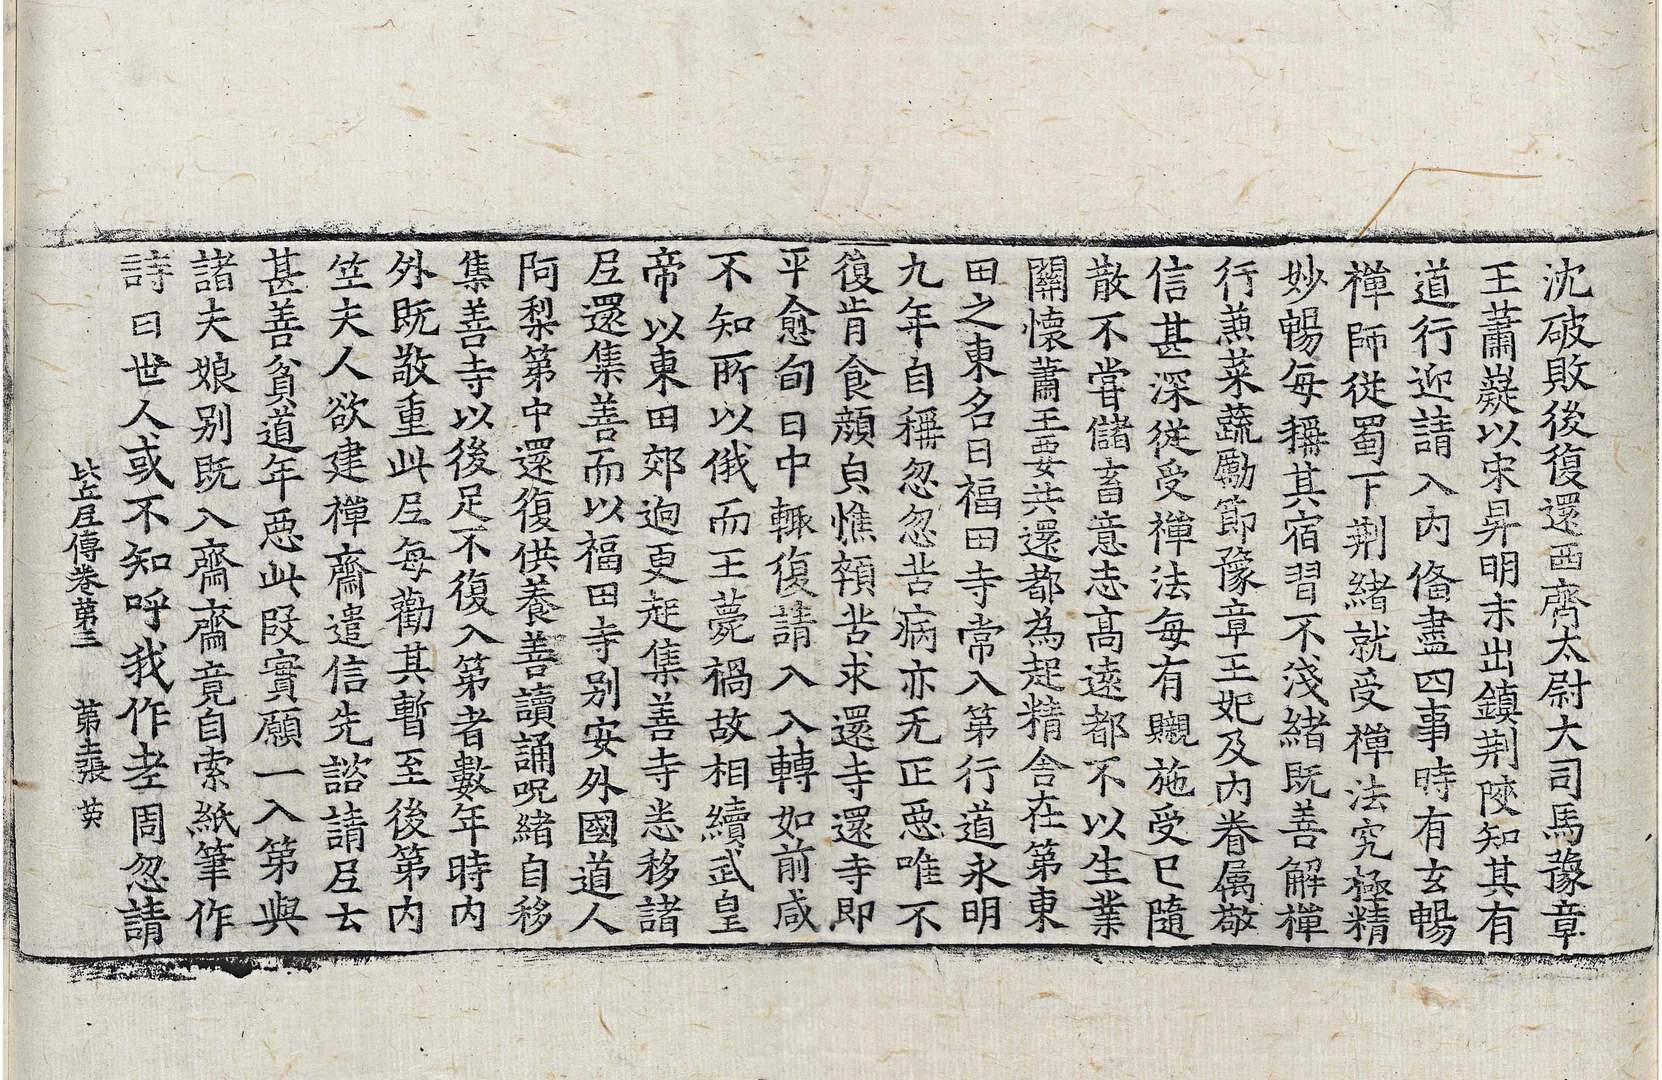 沈破敗後復還西齊太尉大司馬豫章
王蕭嶷以宋昇明末出鎮荆陝知其有
道行迎請入內俻盡四事時有玄暢
禪師從蜀下荆緒就受禪法究極精
妙暢每稱其宿習不淺緒既善解禪
行兼菜蔬勵節豫章王妃及内眷属敬
信甚深從受禪法每有䞋施受已隨
散不甞儲畜意志高遠都不以生業
關懷蕭王要共還都為起精舍在第東
田之東名曰福田寺常入第行道永明
九年自稱忽忽苦病亦无正惡唯不
復肯食顔皃憔頓苦求還寺還寺即
平愈旬日中輙復請入入轉如前咸
不知所以俄而王薨禍故相續武皇
帝以東田郊迫更起集善寺悉移諸
尼還集善而以福田寺別安外國道人
阿梨第中還復供養善讀誦呪緒自移
集善寺以後足不復入第者數年時内
外既敬重此尼每勸其暫至後第内
竺夫人欲建禪齋遣信先諮請尼云
甚善貧道年惡此段實願一入第與
諸夫娘別既入齋齋竟自索紙筆作
詩曰世人或不知呼我作老周忽請
比丘尼傳卷第三　第五張　英